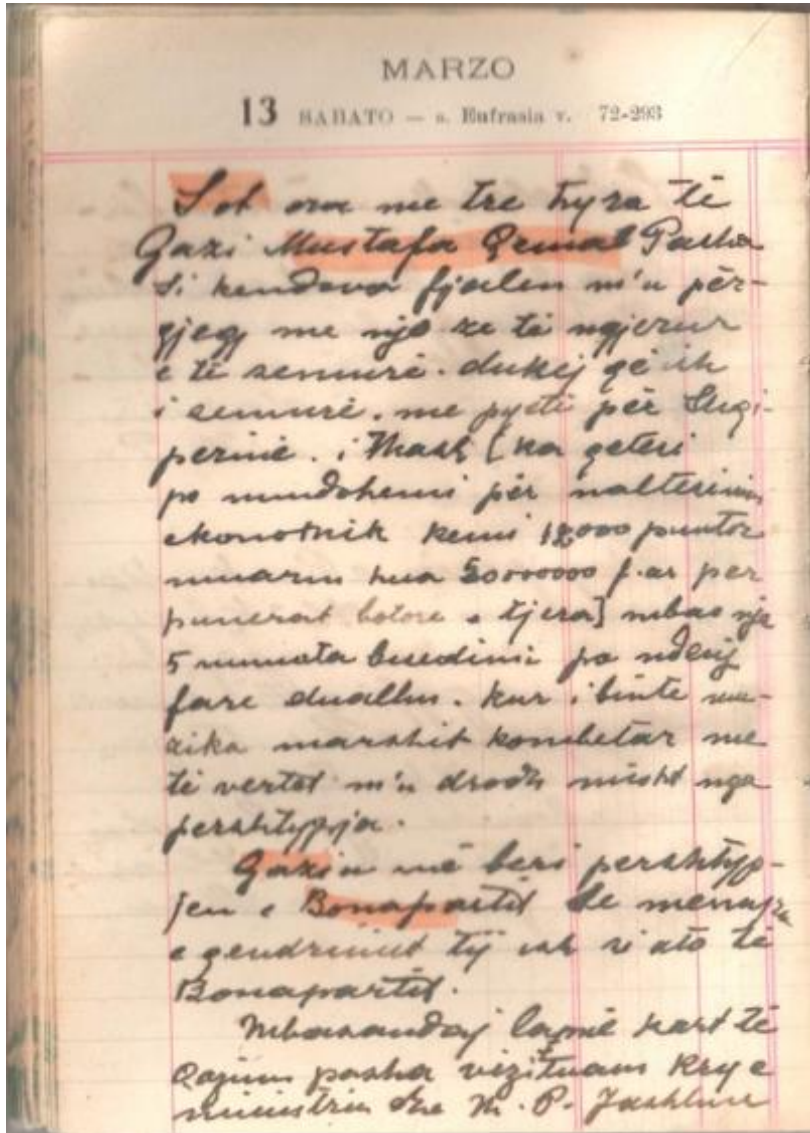 MARZO
13 SABATO — s. Eufrasia v. 72-293
Sot ora me tre hyra të
Gazi Mustafa Qemal Pasha
si kendova fjalen m'u për-
gjegj me një ze të ngjerur
e të semurë. dukej që ish
i semurë. me pyeti për Shqi-
perinë. i thash [ka qeteri
po mundohemi për nalterimin
ekonomik kemi 12000 puntor
muarm hua 50000000 f. ar per
punerat botore e tjera] mbas nje
5 minuta bisedimi po
fare duallm. kur i binte mu-
zika marshit kombetar me
të vertet m'u drodh misht nga
pershtypja.
Gaziu më beri pershtyp-
jen e Bonapartit se menyra
e qendrimit tij ish si ato të
Bonapartit.
Mbasandaj lamë kart të
pasha vizituam krye
ministrin dhe M. P. Jashtme